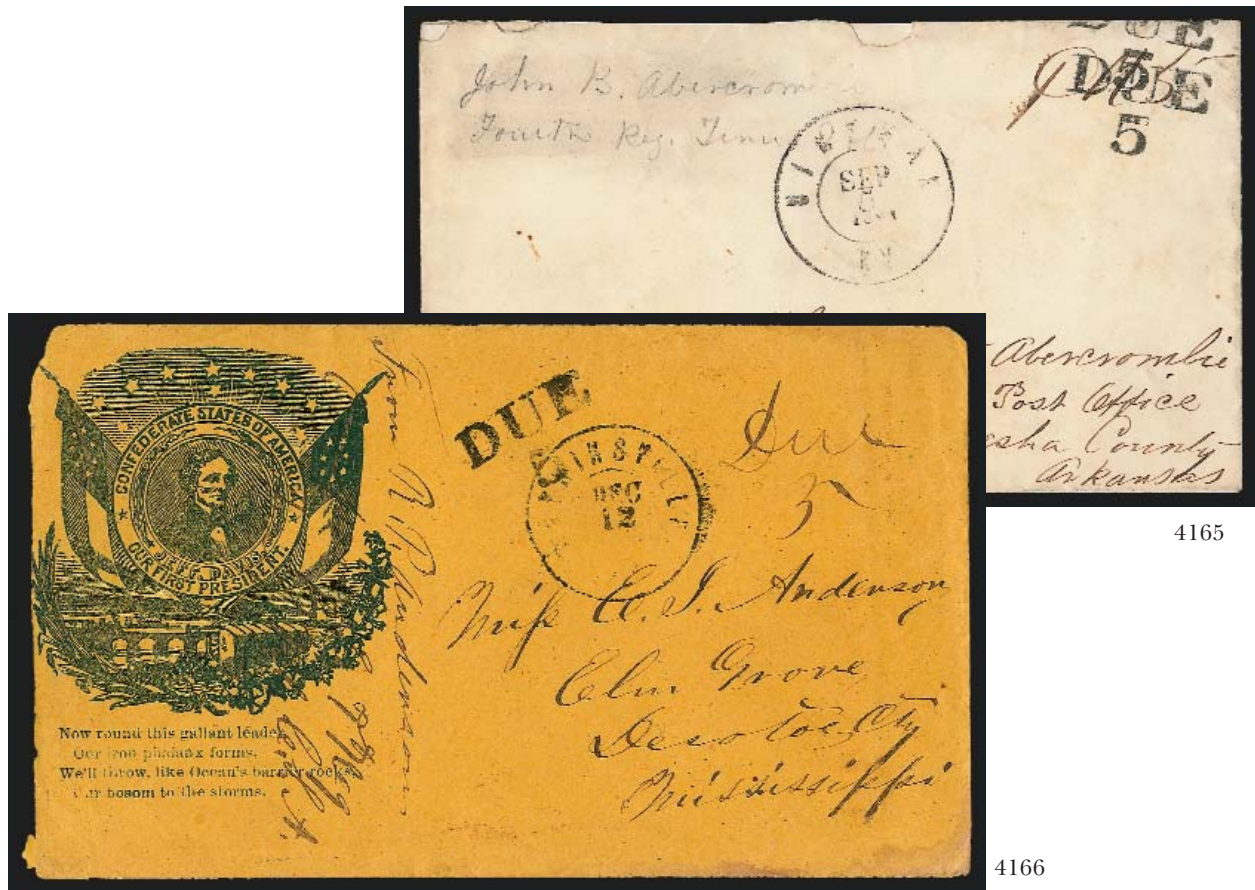 DUE
5
DUE
5
John B. Abercrom
Fourth Reg. Tenn
HICKMAN
SEP
KY
Abercrombie
Post Office
esha County
Arkansas
4165
CONFEDERATE STATES OF AMERICA
JEFF'N DAVIS
OUR FIRST PRESIDENT.
Now round this gallant leader,
Our iron phalanx forms,
We'll throw, like Ocean's barrier rocks,
Our bosom to the storms.
From
DUE
INSVILLE
DEC
12
Due
5
Miss E. J. Anderson
Elm Grove
Desoto Cty
Mississippi
4166